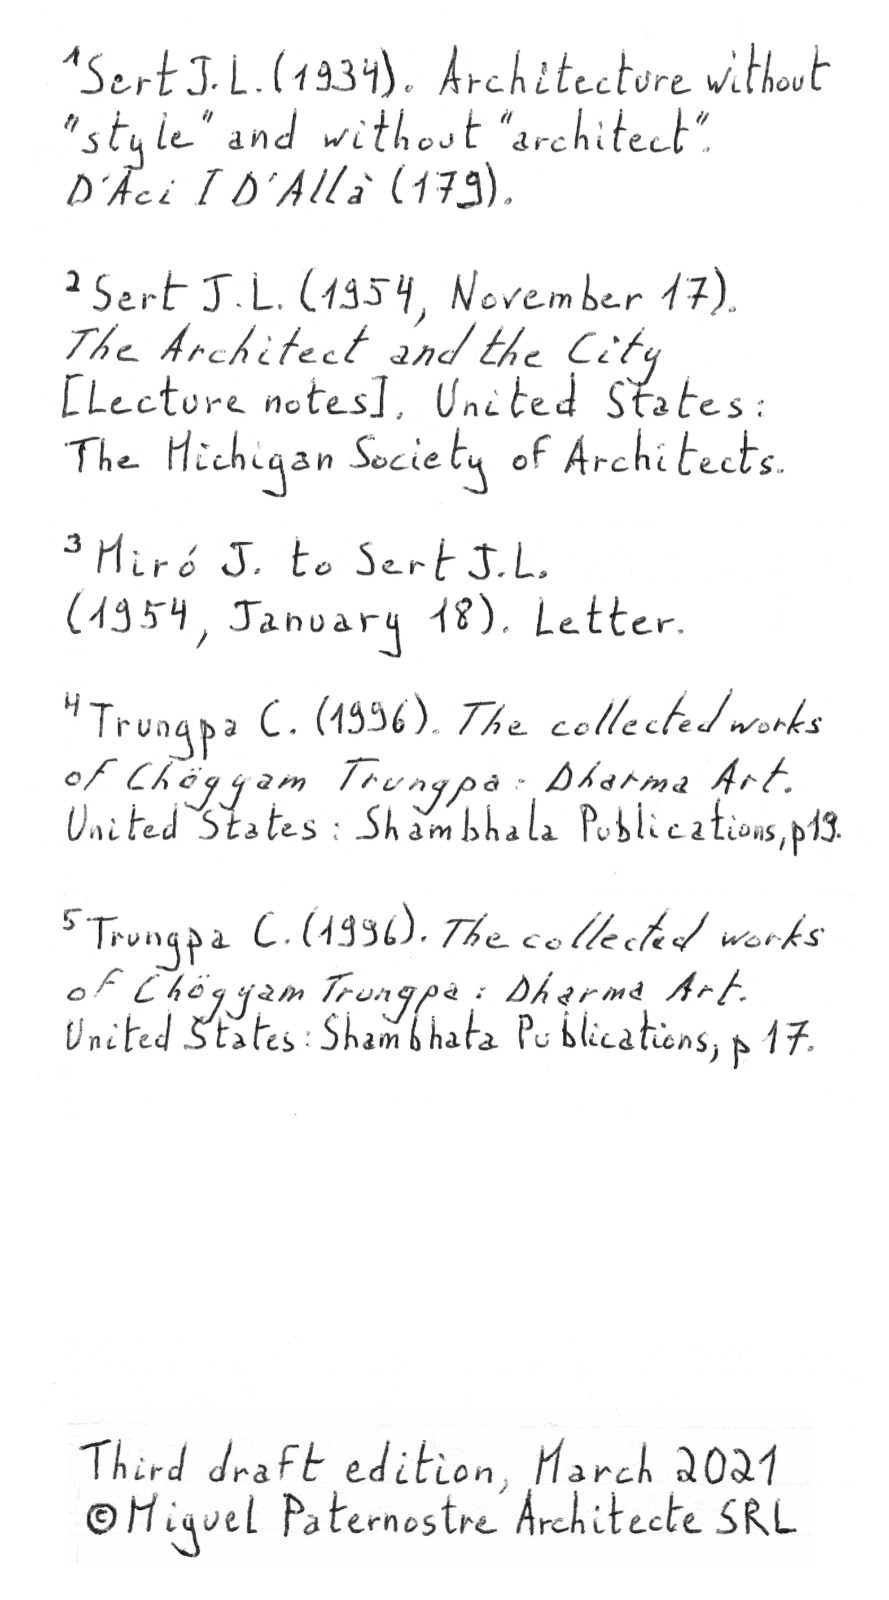 ¹Sert J.L. (1934). Architecture without
"style" and without "architect".
D'Aci I D'Allà (179).
²Sert J.L. (1954, November 17).
The Architect and the City
[Lecture notes], United States:
The Michigan Society of Architects.
³Miró J. to Sert J.L.
(1954, January 18). Letter.
⁴Trungpa C. (1996). The collected works
of Chögyam Trungpa: Dharma Art.
United States: Shambhala Publications, p19.
⁵Trungpa C. (1996). The collected works
of Chögyam Trungpa: Dharma Art.
United States: Shambhata Publications, p 17.
Third draft edition, March 2021
©Miguel Paternostre Architecte SRL